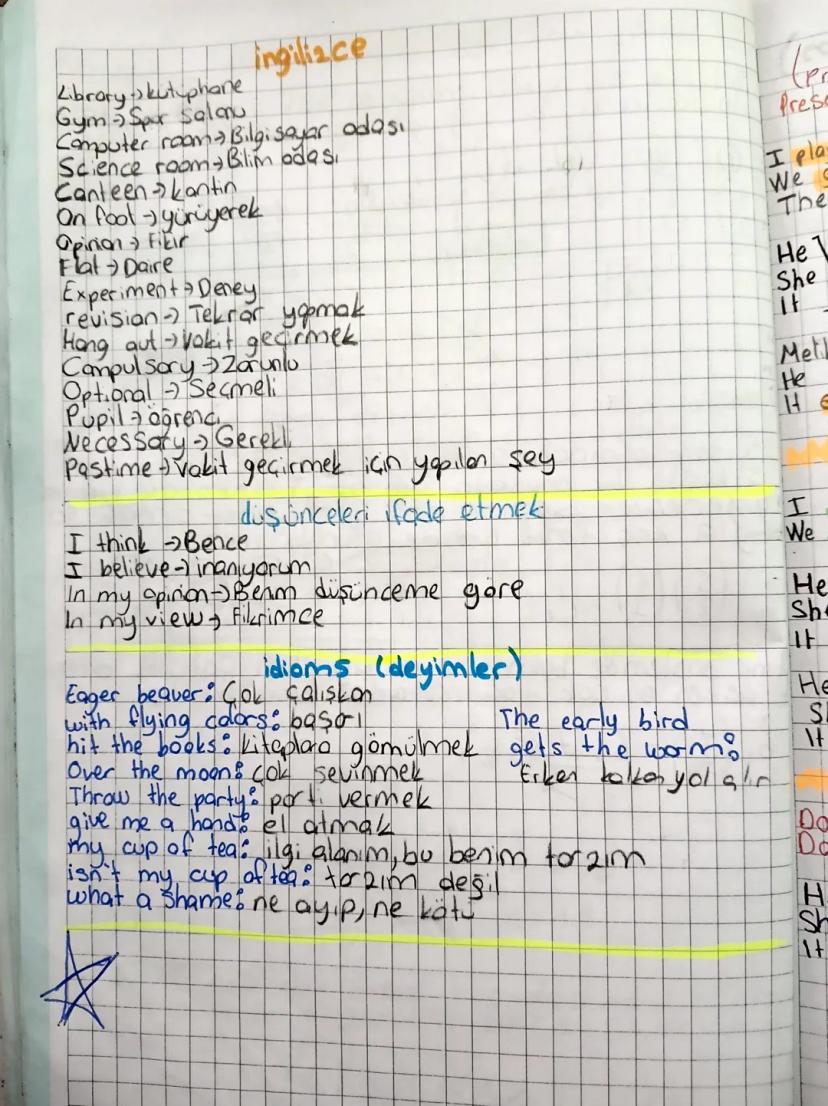 ingilizce
Library→kutuphane
Gym→Spor Salonu
Computer room→Bilgisayar odası
Science room→Bilim odası
Canteen→kantin
On foot→yürüyerek
Opinion→Fikir
Flat→Daire
Experiment→Deney
revision→Tekrar yapmak
Hang out→vakit geçirmek
Compulsory→Zorunlu
Optional→Seçmeli
Pupil→öğrenci
Necessary→Gerekli
Pastime→vakit geçirmek için yapılan şey
düşünceleri ifade etmek
I think→Bence
I believe→inanıyorum
In my opinion→Benim düşünceme göre
In my view→Fikrimce
idioms (deyimler)
Eager beaver: Çok çalışkan
with flying colors: başarı
hit the books: kitaplara gömülmek
Over the moon: çok sevinmek
Throw the party: parti vermek
give me a hand: el atmak
my cup of tea: ilgi alanım, bu benim tarzım
isn't my cup of tea: tarzım değil
what a shame: ne ayıp, ne kötü
The early bird
gets the worm:
Erken kalkan yol alır
Pres
I pla
We
The
He
She
It
He
It
I
We
He
Sh
It
He
S
It
Do
Do
H
Sh
It